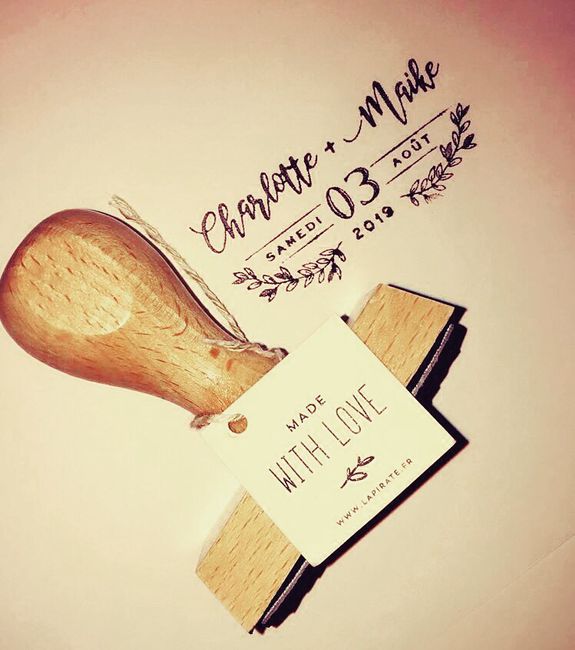 Charlotte + Maike
SAMEDI 03 AOÛT
2019
MADE
WITH LOVE
WWW.LAPIRATE.FR